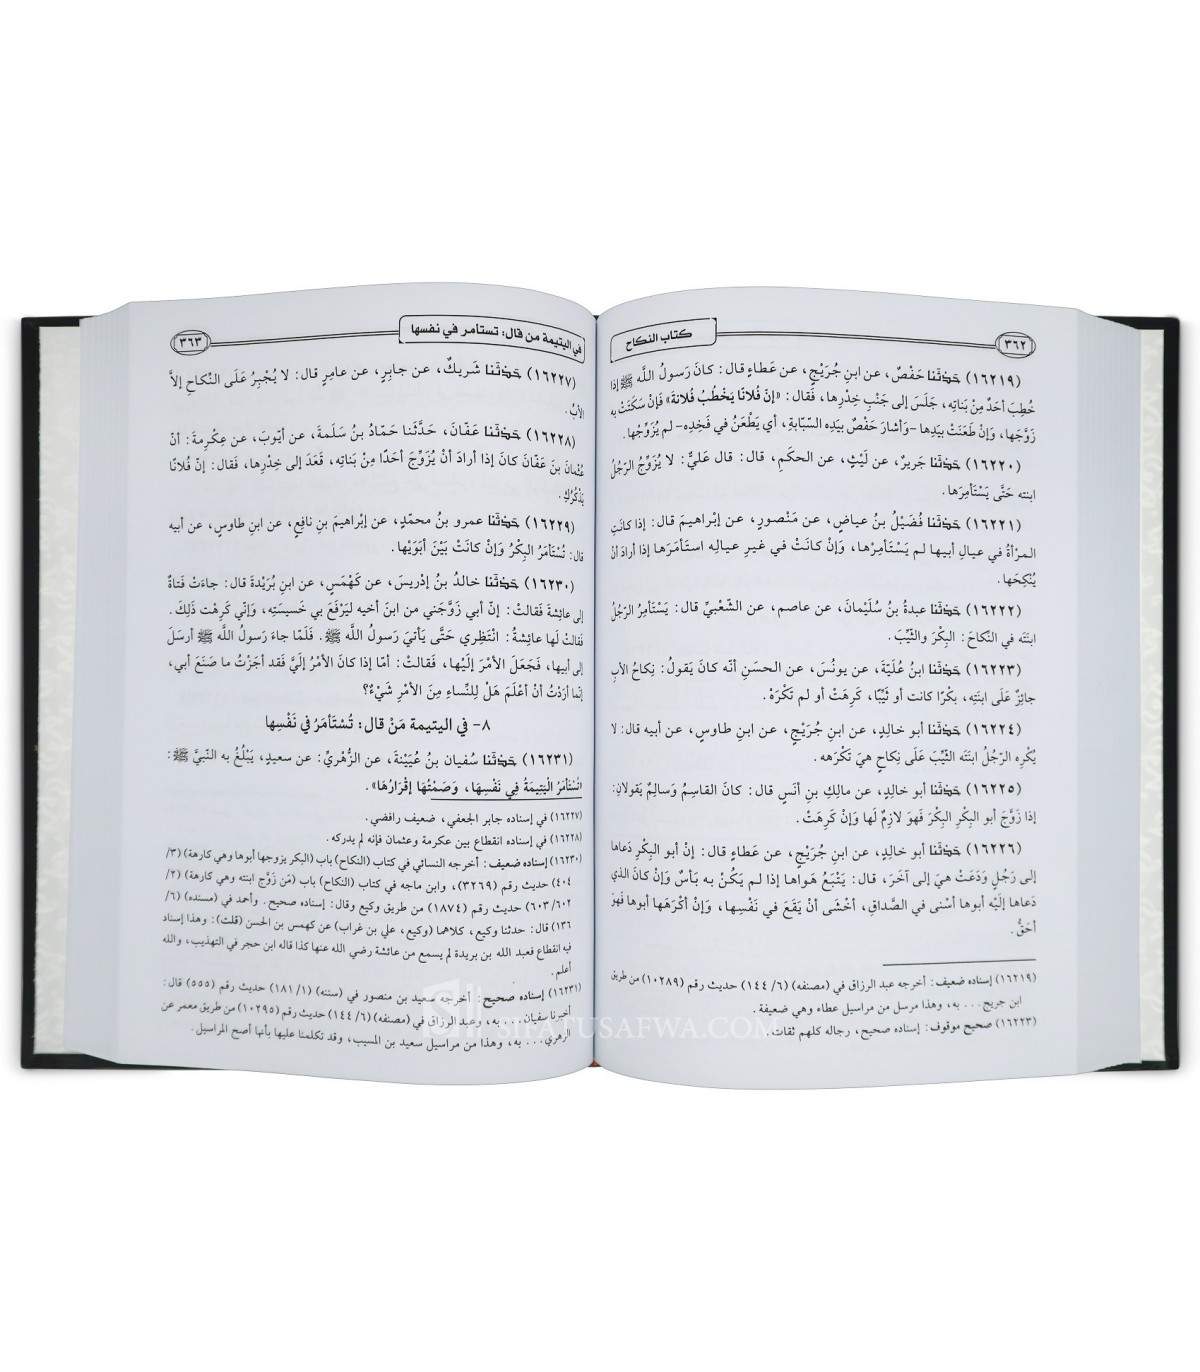 ٣٦٢
كتاب النكاح
(١٦٢١٩) حَدثَنا حَفْصٌ، عن ابنِ جُرَيْجٍ، عن عَطاءٍ قال: كانَ رَسولُ اللَّه ﷺ إذا
خُطِبَ أحَدٌ مِنْ بَناتِه، جَلَسَ إلى جَنْبِ خِدْرِها، فَقال: «إنّ فُلانًا يَخْطُبُ فُلانةَ» فَإنْ سَكَتَتْ به
زَوَّجَها، وَإنْ طَعَنَتْ بيَدِها -وَأشارَ حَفْصٌ بيَدِه السّبّابةِ، أي يَطْعَنُ في فَخِذِه- لم يُزَوِّجْها.
(١٦٢٢٠) حَدثَنا جَريرٌ، عن لَيْثٍ، عن الحكَمِ، قال: قال عَليٌّ: لا يُزَوِّجُ الرّجُلُ
ابنته حَتَّى يَسْتَأمِرَها.
(١٦٢٢١) حَدثَنا فُضَيْلُ بنُ عياضٍ، عن مَنْصورٍ، عن إبْراهيمَ قال: إذا كانَتِ
المرْأةُ في عيالِ أبيها لم يَسْتَأمِرْها، وَإنْ كانَتْ في غيرِ عيالِه استَأمَرَها إذا أرادَ أنْ
يُنْكِحَها.
(١٦٢٢٢) حَدثَنا عبدةُ بنُ سُلَيْمانَ، عن عاصم، عن الشّعْبيِّ قال: يَسْتَأمِرُ الرّجُلُ
ابنَتَه في النّكاحَ: البِكْرَ والثّيِّبَ.
(١٦٢٢٣) حَدثَنا ابنُ عُلَيّةَ، عن يونُسَ، عن الحسَنِ أنّه كانَ يَقولُ: نِكاحُ الأبِ
جائِزٌ عَلَى ابنَتِه، بكْرًا كانت أو ثَيِّبًا، كَرِهَتْ أو لم تَكْرَهْ.
(١٦٢٢٤) حَدثَنا أبو خالِدٍ، عن ابنِ جُرَيْجٍ، عن ابنِ طاوسٍ، عن أبيه قال: لا
يُكْرِه الرّجُلُ ابنَتَه الثّيِّبَ عَلَى نِكاحٍ هيَ تَكْرَهه.
(١٦٢٢٥) حَدثَنا أبو خالِدٍ، عن مالِكِ بنِ أنَسٍ قال: كانَ القاسِمُ وَسالِمٌ يَقولانِ:
إذا زَوَّجَ أبو البِكْرِ البِكْرَ فَهوَ لازِمٌ لَها وَإنْ كَرِهَتْ.
(١٦٢٢٦) حَدثَنا أبو خالِدٍ، عن ابنِ جُرَيْجٍ، عن عَطاءٍ قال: إنْ أبو البِكْرِ دَعاها
إلى رَجُلٍ وَدَعَتْ هيَ إلى آخَرَ، قال: يَتْبَعُ هَواها إذا لم يَكُنْ به بَأسٌ وَإنْ كانَ الذي
دَعاها إلَيْه أبوها أسْنى في الصَّداقِ، أخْشَى أنْ يَقَعَ في نَفْسِها، وَإنْ أكْرَهَها أبوها فَهوَ
أحَقُّ.
(١٦٢١٩) إسناده ضعيف: أخرجه عبد الرزاق في (مصنفه) (٦/ ١٤٤) حديث رقم (١٠٢٨٩) من طريق
ابن جريج ... به، وهذا مرسل من مراسيل عطاء وهي ضعيفة.
(١٦٢٢٣) صحيح موقوف: إسناده صحيح، رجاله كلهم ثقات.
في اليتيمة من قال: تستامر في نفسها
٣٦٣
(١٦٢٢٧) حَدثَنا شَريكٌ، عن جابِرٍ، عن عامِرٍ قال: لا يُجْبِرُ عَلَى النّكاحِ إلاَّ
الأبُ.
(١٦٢٢٨) حَدثَنا عَفّانَ، حَدَّثَنا حَمّادُ بنُ سَلَمةَ، عن أيّوبَ، عن عِكْرِمةَ: أنْ
عُثمانَ بنَ عَفّانَ كانَ إذا أرادَ أنْ يُزَوِّجَ أحَدًا مِنْ بَناتِه، قَعَدَ إلى خِدْرِها، فَقال: إنّ فُلانًا
يَذْكُرُكِ.
(١٦٢٢٩) حَدثَنا عمرو بنُ محمّدٍ، عن إبْراهيمَ بنِ نافِعٍ، عن ابنِ طاوسٍ، عن أبيه
قال: تُسْتَأمَرُ البِكْرُ وَإنْ كانَتْ بَيْنَ أبَوَيْها.
(١٦٢٣٠) حَدثَنا خالدُ بنُ إدْريسَ، عن كَهْمَسٍ، عن ابنِ بُرَيْدةَ قال: جاءَتْ فَتاةٌ
إلى عائِشةَ فَقالتْ: إنّ أبي زَوَّجَني من ابنَ أخيه ليَرْفَعَ بي خَسيسَتِه، وَإنّي كَرِهْت ذَلِكَ.
فَقالتْ لَها عائِشةُ: انْتَظِري حَتَّى يَأتيَ رَسولُ اللَّه ﷺ. فَلَمّا جاءَ رَسولُ اللَّه ﷺ أرسَلَ
إلى أبيها، فَجَعَلَ الأمْرَ إلَيْها، فَقالتْ: أمّا إذا كانَ الأمْرُ إلَيَّ فَقد أجَزْتُ ما صَنَعَ أبي،
إنّما أرَدْتُ أنْ أعْلَمَ هَلْ لِلنِّساءِ مِنَ الأمْرِ شَيْءٌ؟
٨- في اليتيمة مَنْ قال: تُسْتَأمَرُ في نَفْسِها
(١٦٢٣١) حَدثَنا سُفيان بنُ عُيَيْنةَ، عن الزُّهْريِّ: عن سعيدٍ، يَبْلُغُ به النّبيَّ ﷺ:
«تُسْتَأمَرُ اليَتيمَةُ فِي نَفْسِهَا، وَصَمْتُهَا إقْرَارُهَا».
(١٦٢٢٧) في إسناده جابر الجعفي، ضعيف رافضي.
(١٦٢٢٨) في إسناده انقطاع بين عكرمة وعثمان فإنه لم يدركه.
(١٦٢٣٠) إسناده ضعيف: أخرجه النسائي في كتاب (النكاح) باب (البكر يزوجها أبوها وهي كارهة) (٣/
٤٠٤) حديث رقم (٣٢٦٩)، وابن ماجه في كتاب (النكاح) باب (مَن زَوَّج ابنته وهي كارهة) (٢/
٦٠٢/ ٦٠٣) حديث رقم (١٨٧٤) من طريق وكيع وقال: إسناده صحيح. وأحمد في (مسنده) (٦/
١٣٦) قال: حدثنا وكيع، كلاهما (وكيع، علي بن غراب) عن كهمس بن الحسن (قلت): وهذا إسناد
فيه انقطاع فعبد الله بن بريدة لم يسمع من عائشة رضي الله عنها كذا قاله ابن حجر في التهذيب، والله
أعلم.
(١٦٢٣١) إسناده صحيح: أخرجه سعيد بن منصور في (سننه) (١/ ١٨١) حديث رقم (٥٥٥) قال:
أخبرنا سفيان ... به، وعبد الرزاق في (مصنفه) (٦/ ١٤٤) حديث رقم (١٠٢٩٥) من طريق معمر عن
الزهري... به، وهذا من مراسيل سعيد بن المسيب، وقد تكلمنا عليها بأنها أصح المراسيل.
SIFATUSAFWA.COM